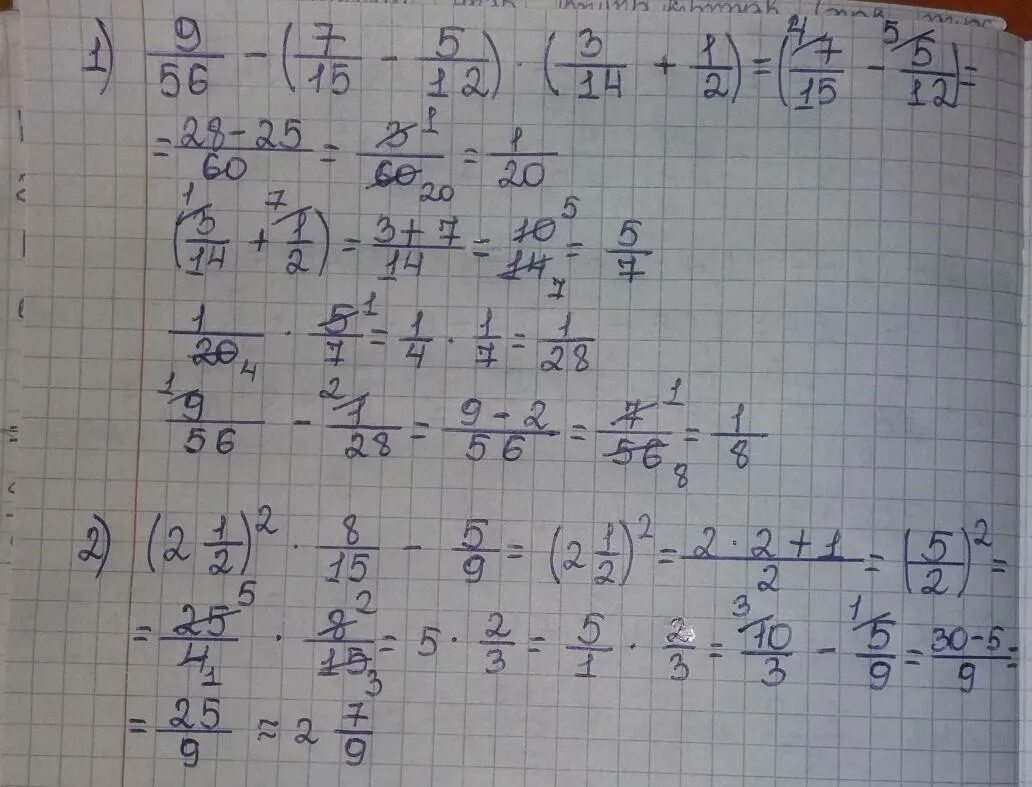 1) 9/56 - (7/15 - 5/12) · (3/14 + 1/2) = (⁴⁄7/15 - ⁵⁄5/12) =
= 28-25/60 = 3¹/60₂₀ = 1/20
(¹⁄3/14 + ⁷⁄1/2) = 3+7/14 = 10⁵/14₇ = 5/7
1/20₄ · 5¹/7 = 1/4 · 1/7 = 1/28
¹⁄9/56 - ²⁄1/28 = 9-2/56 = 7¹/56₈ = 1/8
2) (2 1/2)² · 8/15 - 5/9 = (2 1/2)² = 2·2+1/2 = (5/2)² =
= 25⁵/4₁ · 8²/15₃ = 5 · 2/3 = 5/1 · 2/3 = ³⁄10/3 - ¹⁄5/9 = 30-5/9 =
= 25/9 = 2 7/9